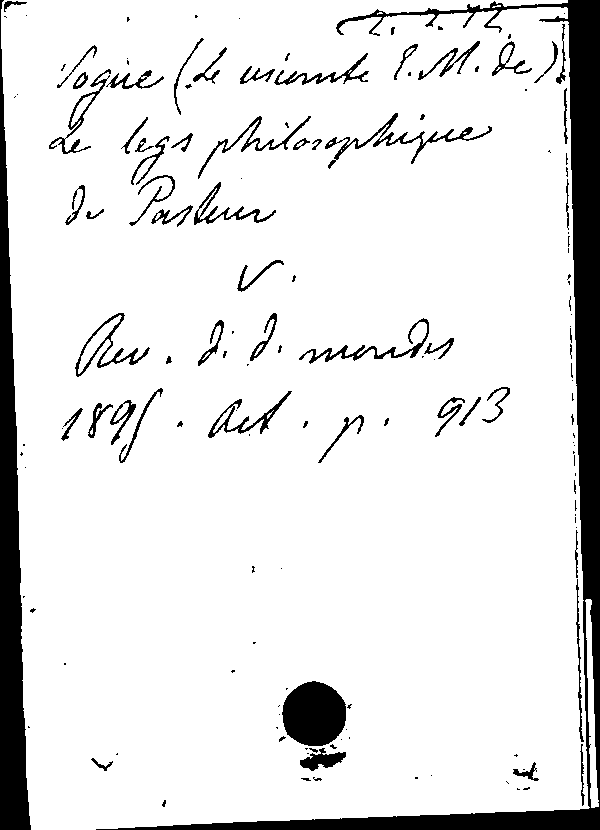 2. 2. 12
Vogüe (Le vicomte E. M. de).
Le legs philosophique
de Pasteur
V.
Rev. d. d. mondes
1895. Oct. p. 913